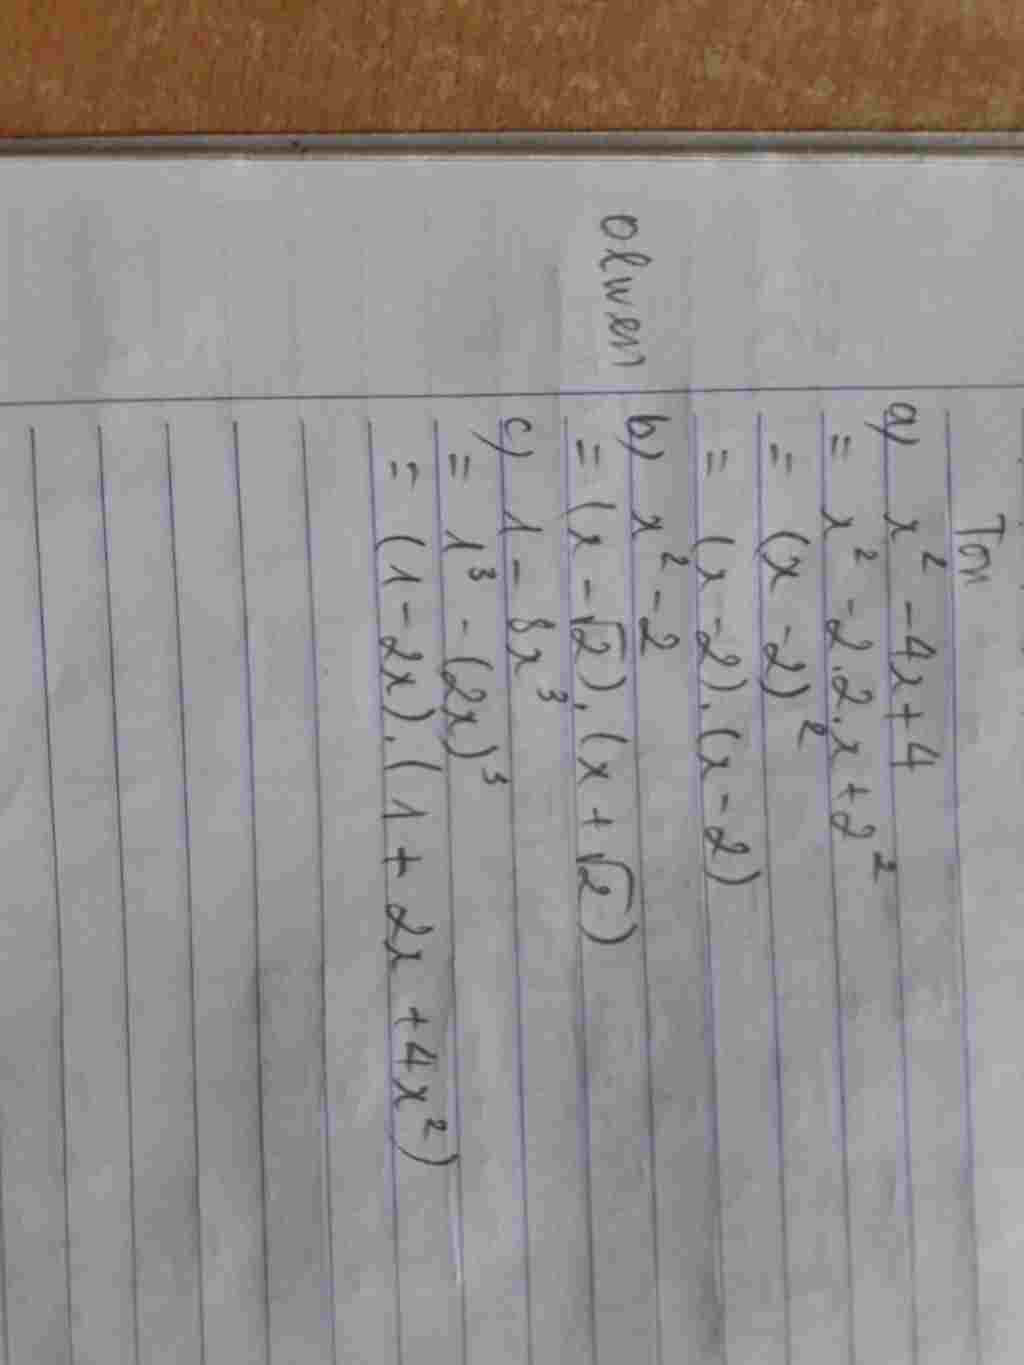 Ton
a) x² - 4x + 4
= x² - 2.2.x + 2²
= (x - 2)²
= (x - 2).(x - 2)
olwen
b) x² - 2
= (x - √2).(x + √2)
c) 1 - 8x³
= 1³ - (2x)³
= (1 - 2x).(1 + 2x + 4x²)